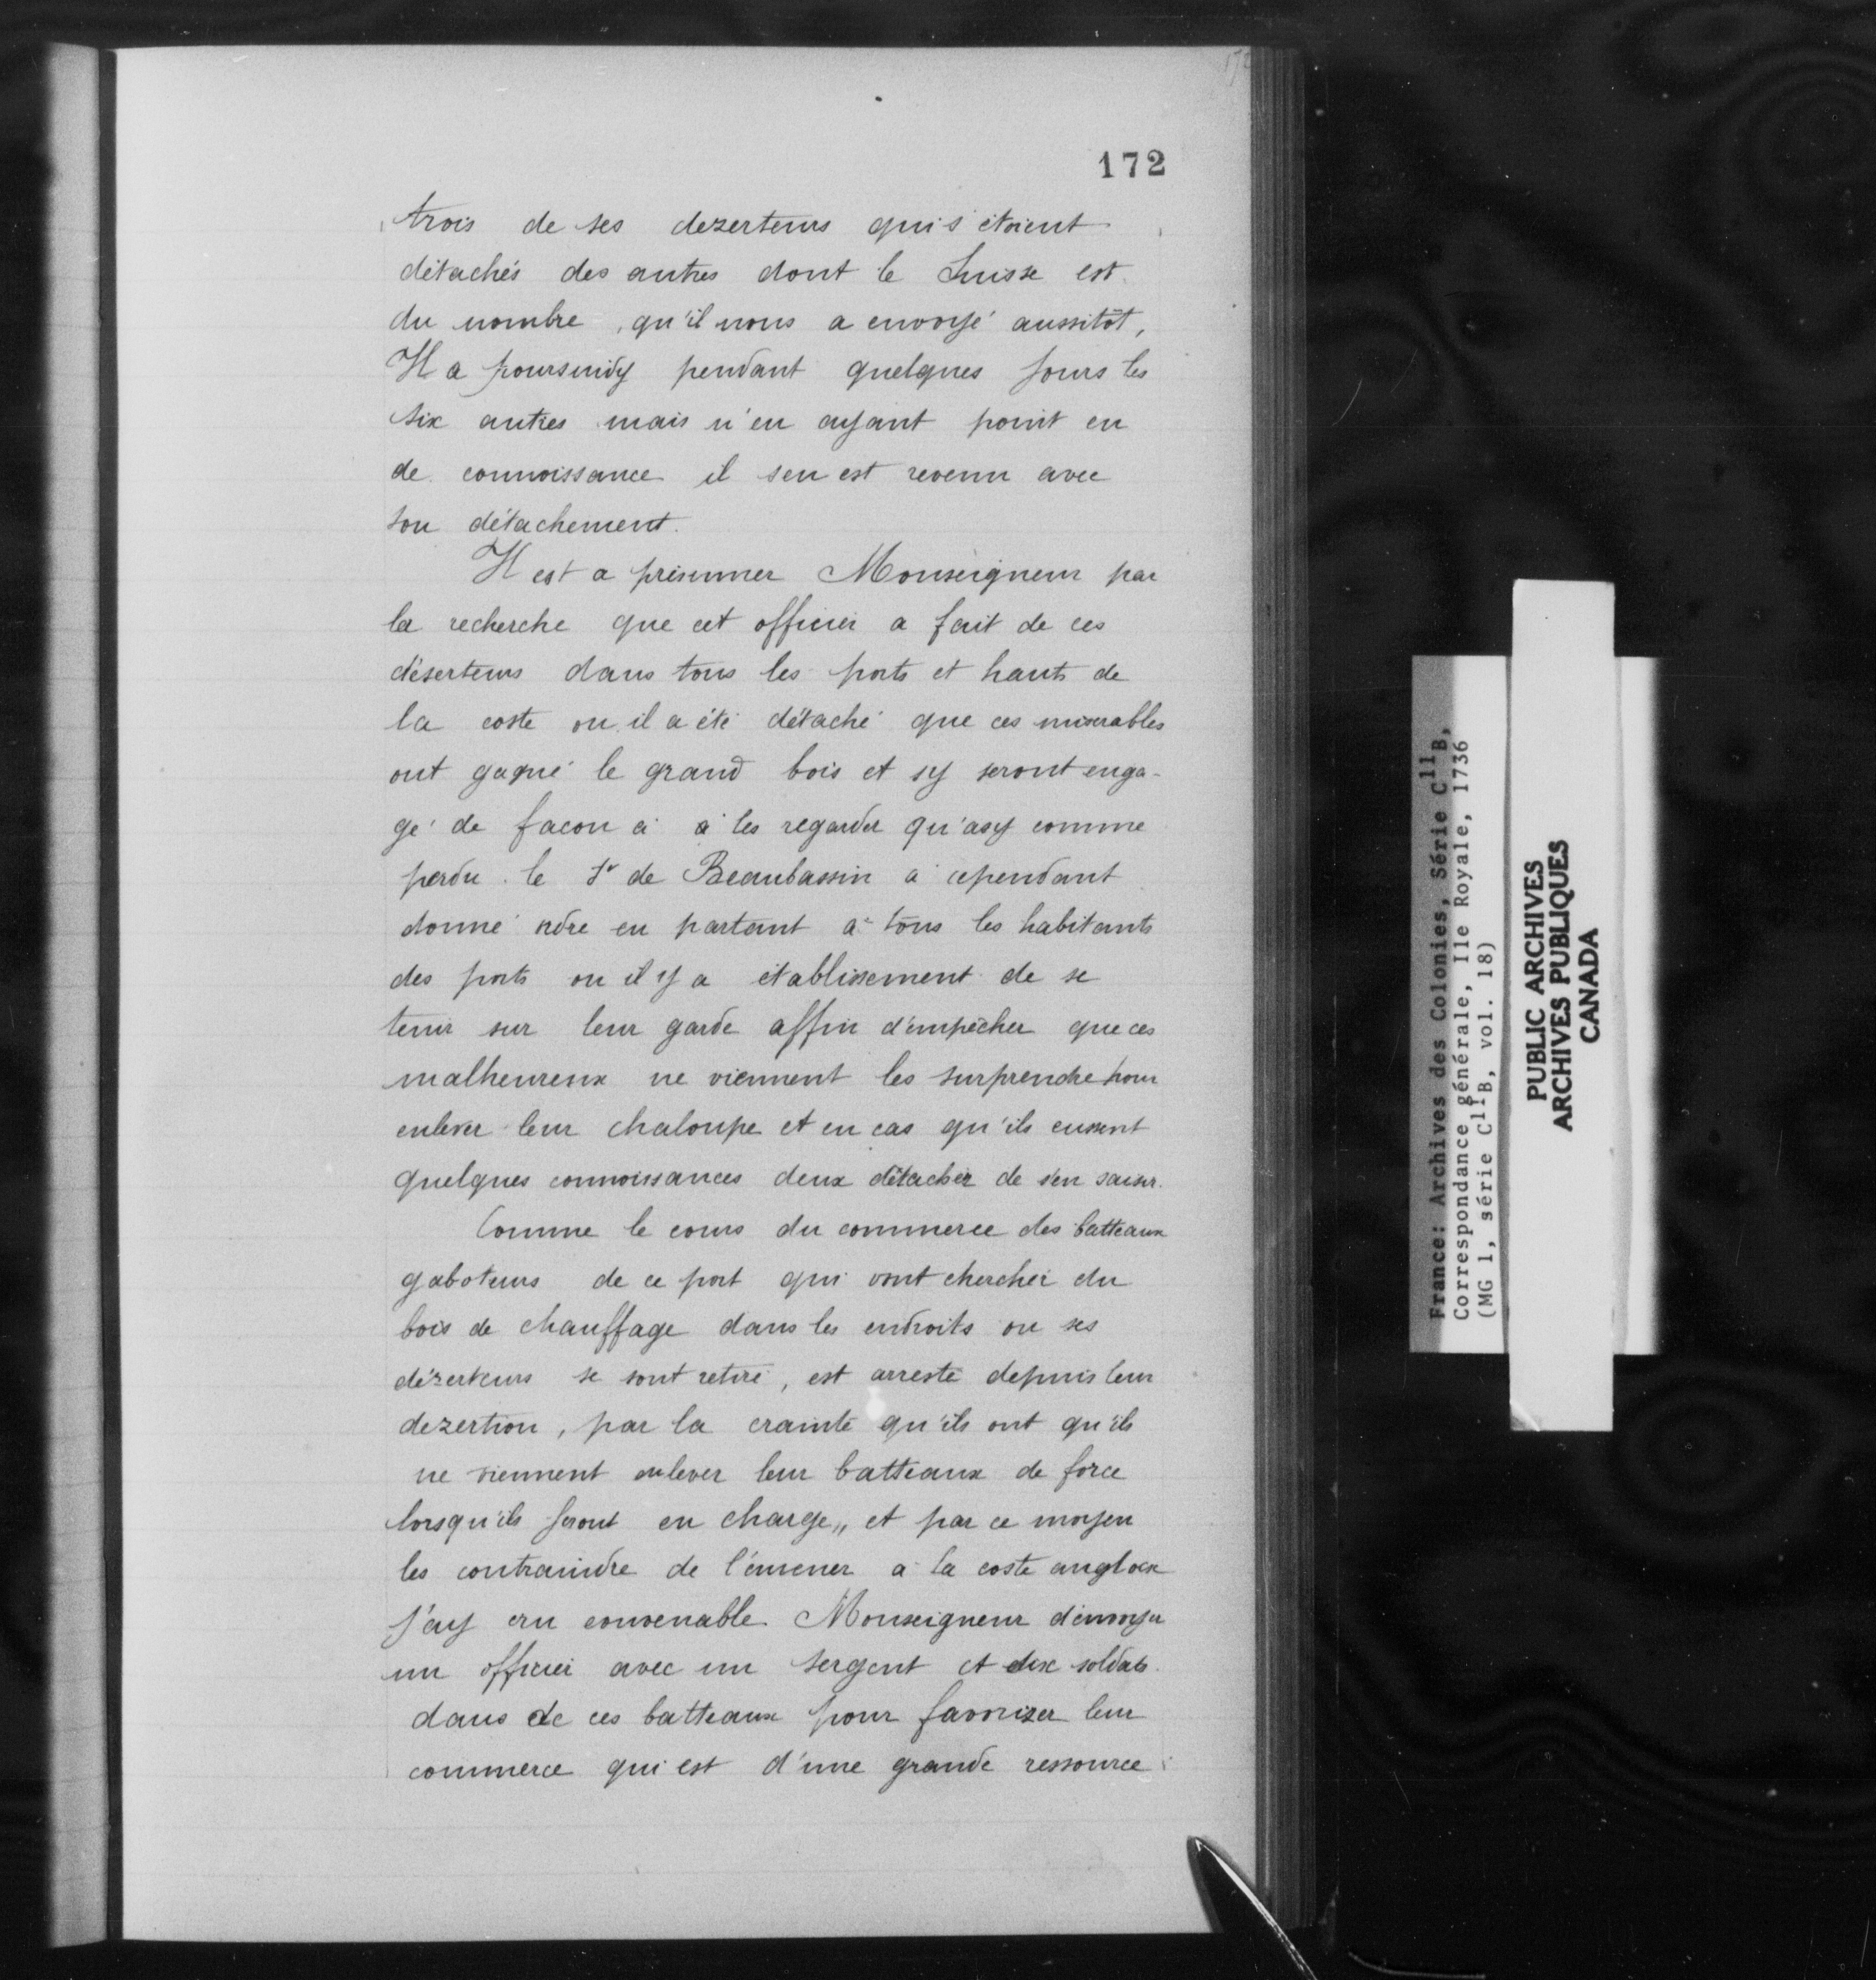 172
trois de ses dezerteurs qui s'étoient
détachés des autres dont le Suisse est
du nombre, qu'il nous a envoyé aussitôt,
Il a poursuidy pendant quelques jours les
six autres mais n'en ayant point eu
de connoissance il s'en est revenu avec
son détachement.
Il est a présumer Monseigneur par
la recherche que cet officier a fait de ces
déserteurs dans tous les ports et hauts de
la coste ou il a été détaché que ces miserables
ont gagné le grand bois et sy seront enga-
gé de facon à à les regarder qu'asy comme
perdu. le Sr de Beaubassin a cependant
donné ordre en partant a tous les habitants
des ports ou il y a établissement de se
tenir sur leur garde affin d'empêcher que ces
malheureux ne viennent les surprendre pour
enlever leur chaloupe et en cas qu'ils eussent
quelques connoissances deux détacher de s'en saisir.
Comme le cours du commerce des batteaux
gaboteurs de ce port qui vont chercher du
bois de chauffage dans les endroits ou ses
dézerteurs se sont retiré, est arresté depuis leur
dezertion, par la crainte qu'ils ont qu'ils
ne viennent enlever leur batteaux de force
lorsqu'ils seront en charge,, et par ce moyen
les contraindre de l'émener a la coste angloise
J'ay cru convenable Monseigneur d'envoyer
un officier avec un sergent et dix soldats
dans de ces batteaux pour favorizer leur
commerce qui est d'une grande ressource
France: Archives des Colonies, Série C11B,
Correspondance générale, Ile Royale, 1736
(MG 1, série C11B, vol. 18)
PUBLIC ARCHIVES
ARCHIVES PUBLIQUES
CANADA